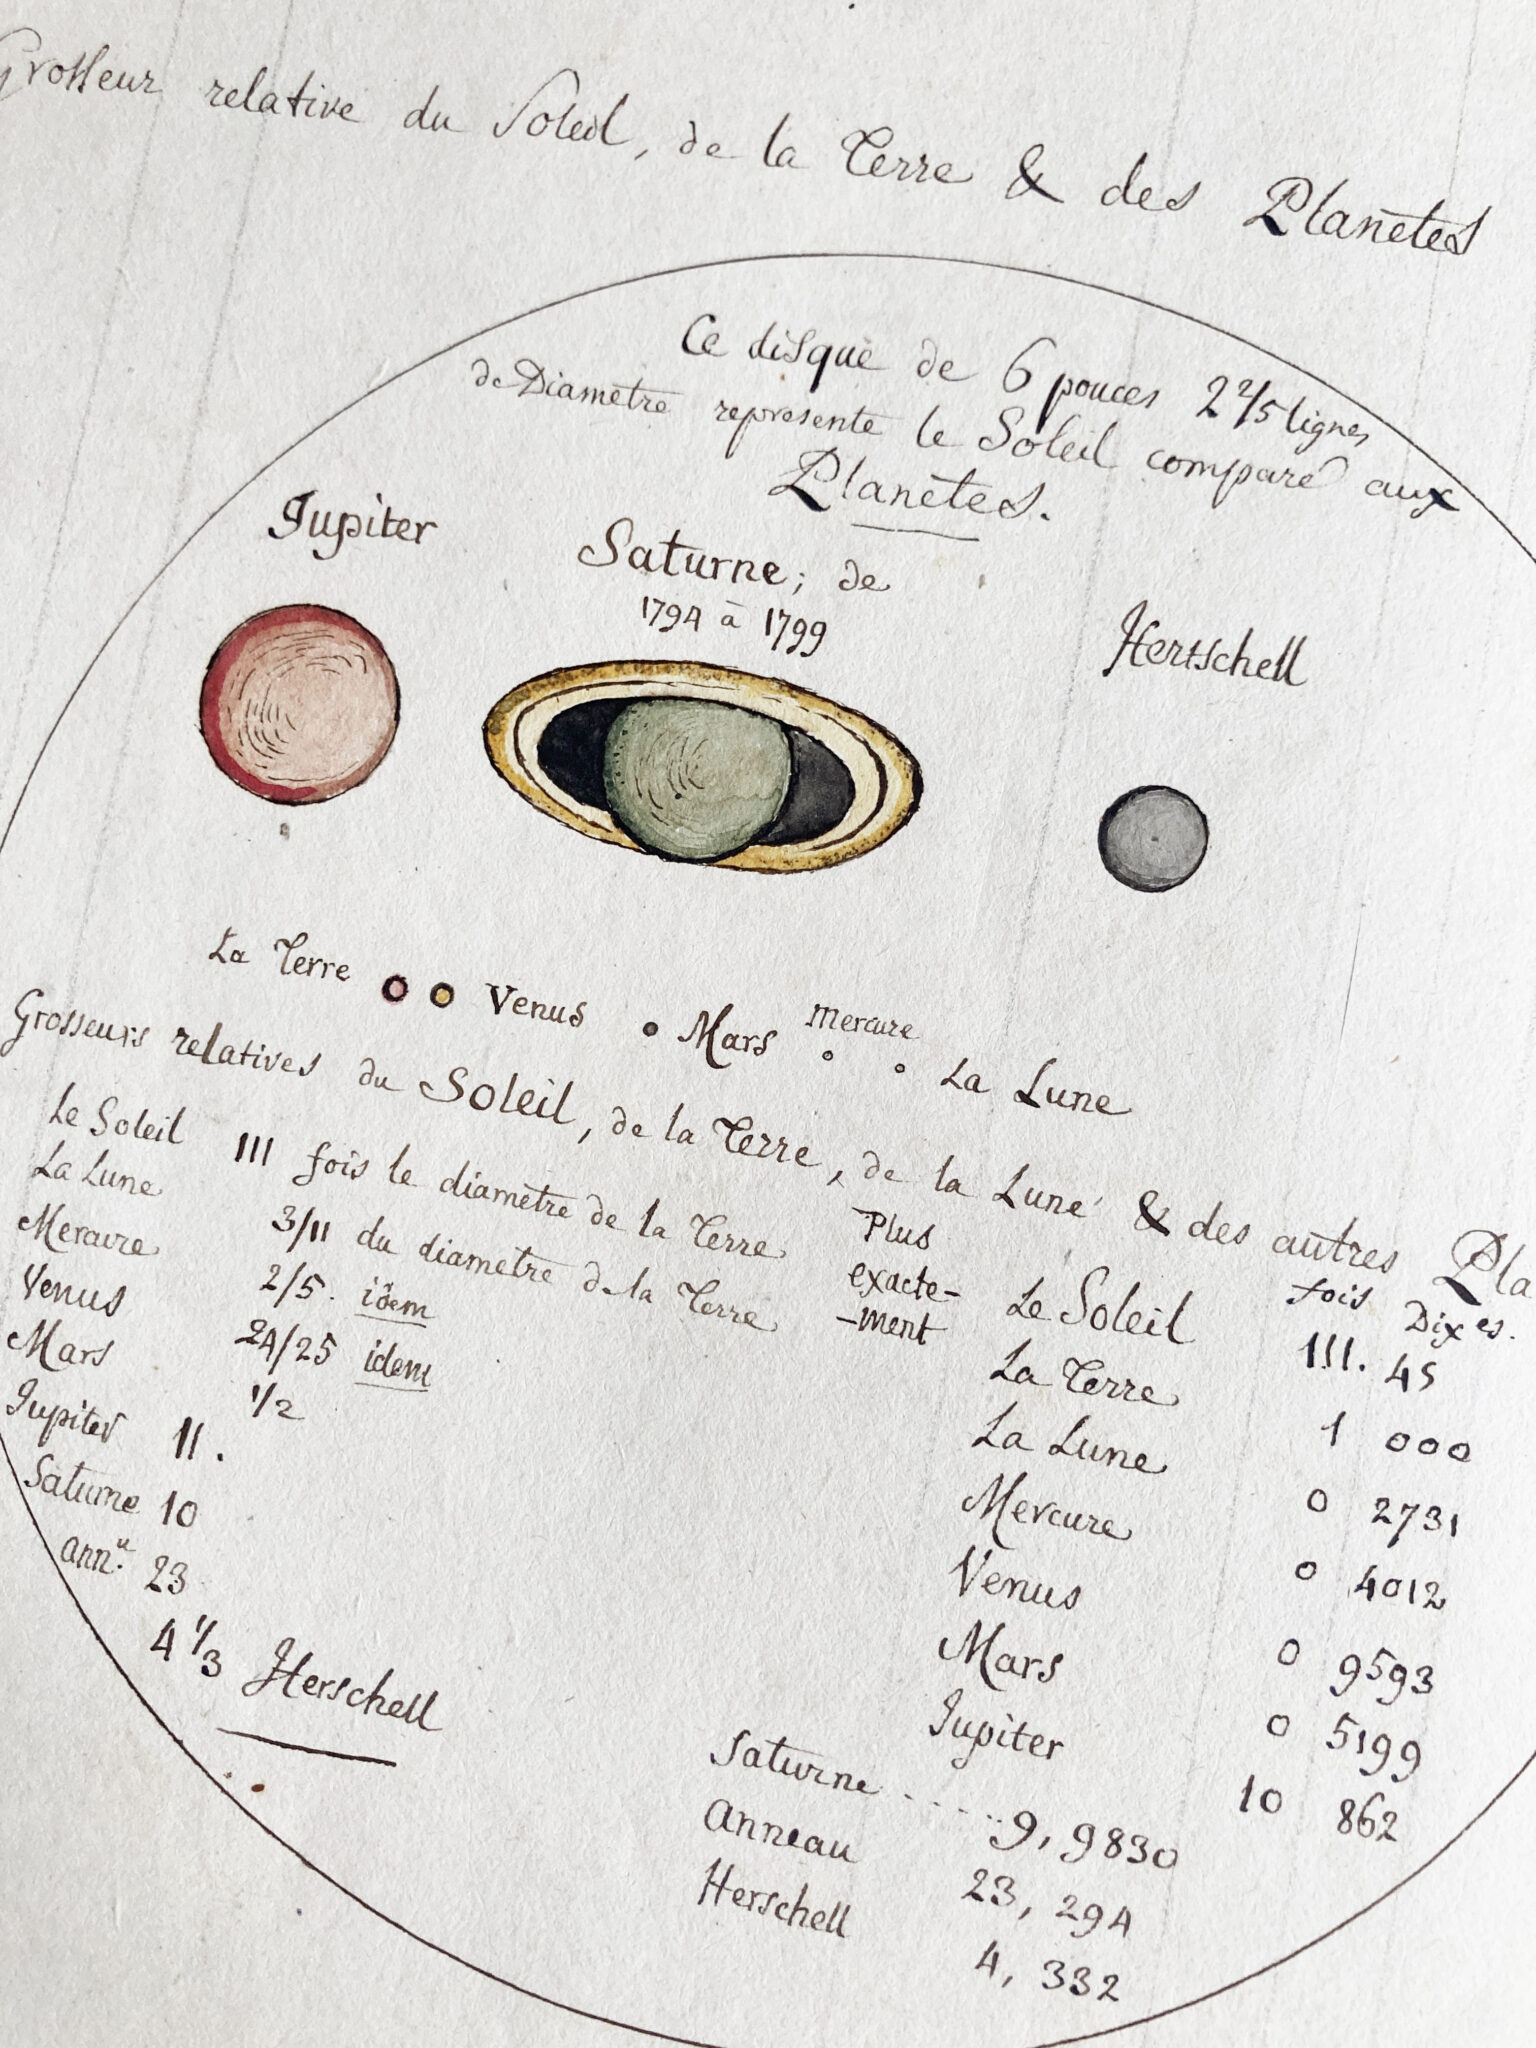 Grosseur relative du Soleil, de la Terre & des Planètes
Ce disque de 6 pouces 2 2/5 lignes
de Diamètre represente le Soleil comparé aux
Planètes.
Jupiter
Saturne; de
1794 à 1799
Hertschell
La Terre
Venus
Mars
Mercure
La Lune
Grosseurs relatives du Soleil, de la Terre, de la Lune & des autres Pla
Le Soleil 111 fois le diamètre de la Terre
La Lune 3/11 du diamètre de la Terre
Mercure 2/5. idem
Venus 24/25 idem
Mars 1/2
Jupiter 11.
Saturne 10
annu. 23
4 1/3 Herschell
Plus
exacte-
-ment
fois Dixes.
Le Soleil 111. 45
La Terre 1 000
La Lune 0 2731
Mercure 0 4012
Venus 0 9593
Mars 0 5199
Jupiter 10 862
Saturne ..... 9, 9830
Anneau 23, 294
Herschell 4, 332